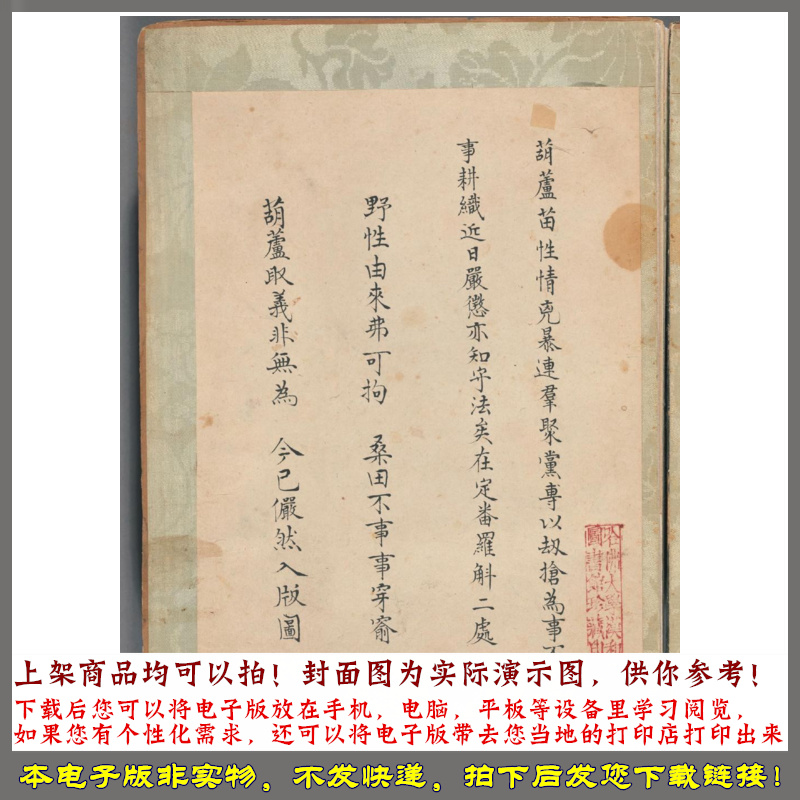 葫蘆苗性情兇暴連羣聚黨專以刼搶為事不
事耕織近日嚴懲亦知守法矣在定番羅斛二處
野性由來弗可拘 桑田不事事穿窬
葫蘆取義非無為 今已儼然入版圖
上架商品均可以拍！封面图为实际演示图，供你参考！
下载后您可以将电子版放在手机，电脑，平板等设备里学习阅览，
如果您有个性化需求，还可以将电子版带去您当地的打印店打印出来
本电子版非实物，不发快递，拍下后发您下载链接！